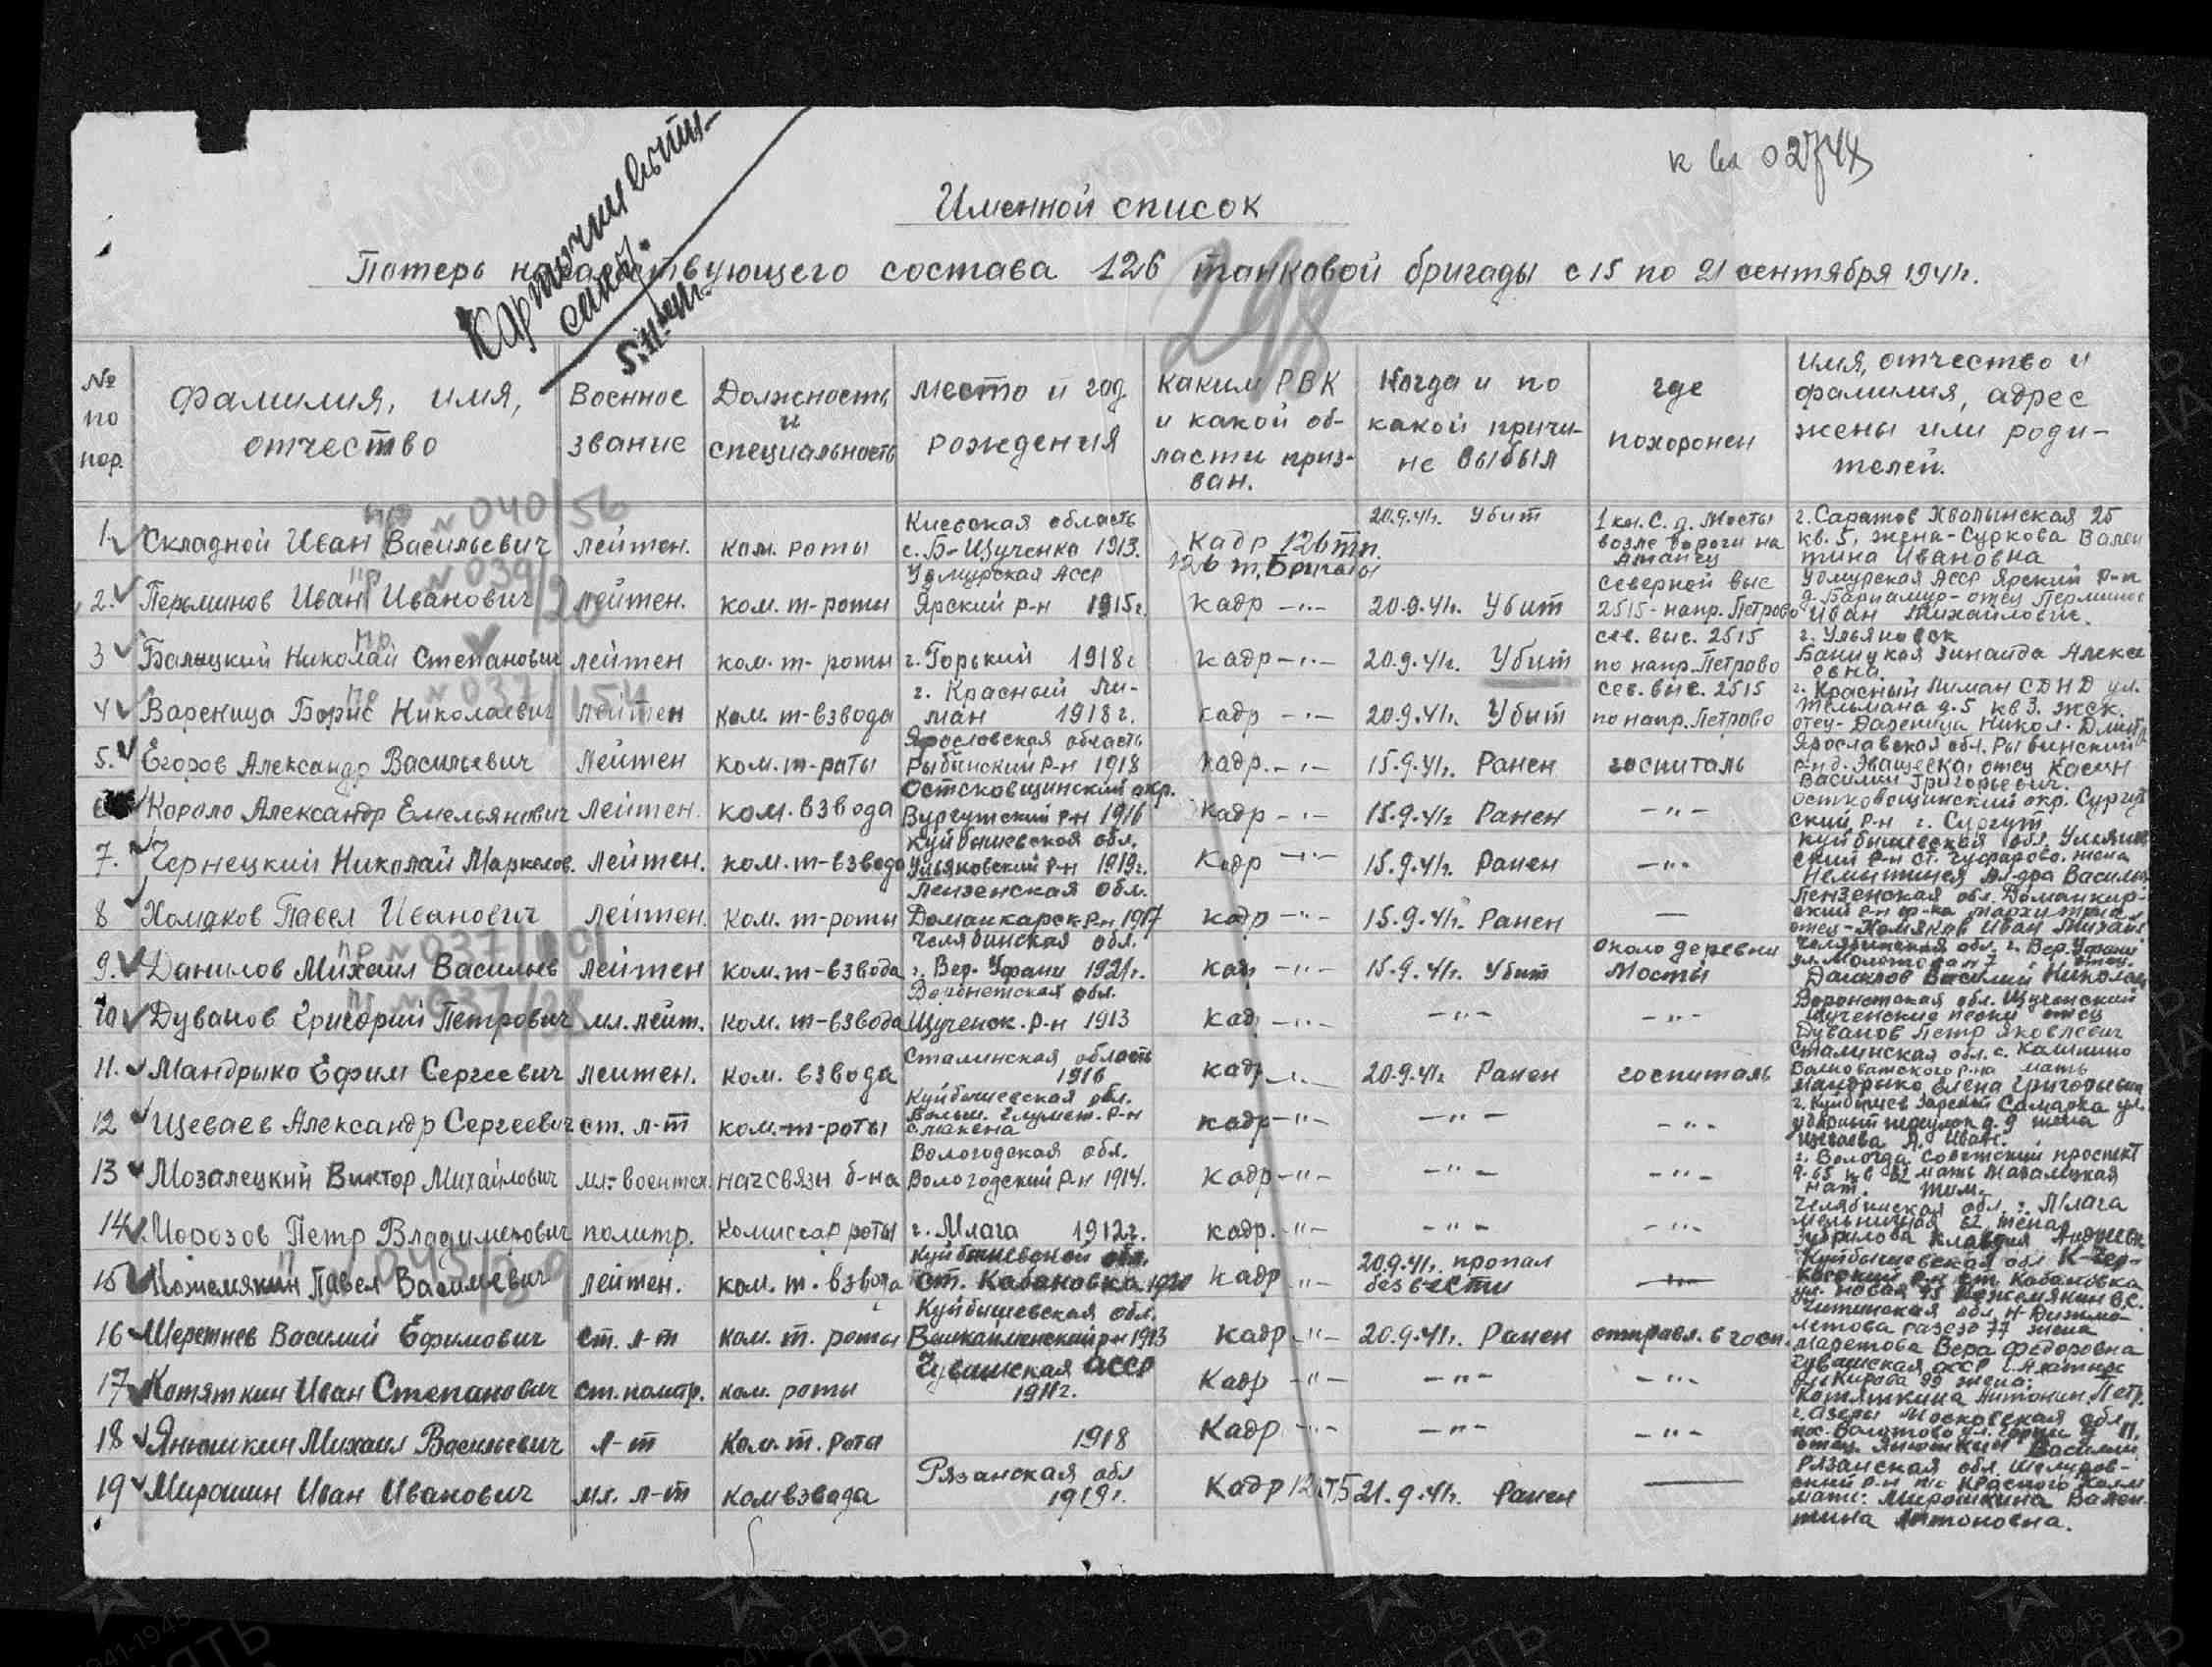 Карточки
5.11.41г.
к вх 02744
Именной список
Потерь начальствующего состава 126 танковой бригады с 15 по 21 сентября 1941г.
298
№ по пор.
Фамилия, имя, отчество
Военное звание
Должность и специальность
Место и год рождения
Каким РВК и какой области призван.
Когда и по какой причине выбыл
где похоронен
имя, отчество и фамилия, адрес жены или родителей.
пр № 040/56
1. Складной Иван Васильевич лейтен. ком. роты Киевская область с. Б-Щученка 1913. Кадр 126 тп. 126 т. Бригады 20.9.41г. Убит 1 км. С. д. Мосты возле дороги на г. Саратов Хвалынская 25 кв. 5, жена-Суркова Валентина Ивановна
пр № 039/20
2. Перьминов Иван Иванович лейтен. ком. т-роты Удмурская АССР Ярский р-н 1915г. кадр -"- 20.9.41г. Убит северной выс 2515-напр. Петрово Удмурская АССР Ярский р-н отец Перминов Иван Михайлович.
пр
3 Балицкий Николай Степанович лейтен ком. т-роты г. Горький 1918г кадр -"- 20.9.41г. Убит сев. выс. 2515 по напр. Петрово г. Ульяновск Балицкая Зинаида Алексеевна
пр № 037/154
4 Вареница Борис Николаевич лейтен ком. т-взвода г. Красный Лиман 1918г. кадр -"- 20.9.41г. Убит сев. выс. 2515 по напр. Петрово г. Красный Лиман ул. Тельмана д. 5 кв 3. отец-Вареница Никол. Дмитр
5. Егоров Александр Васильевич лейтен ком. т-роты Ярославская область Рыбинский р-н 1918 кадр. -"- 15.9.41г. Ранен госпиталь Ярославская обл. Рыбинский р-н отец Василий Григорьевич.
6 Короло Александр Емельянович лейтен. ком. взвода Остсковщинский окр. Вургутский р-н 1916 кадр -"- 15.9.41г Ранен -"- Остковощинский окр. Сургутский р-н г. Сургут
7. Чернецкий Николай Маркелов. лейтен. ком. т-взвода Куйбышевская обл. Ульяновский р-н 1919г. Кадр -"- 15.9.41г. Ранен -"- Куйбышевская обл. Ульяновский р-н ст. Чуфарово. жена Ал-дра Васильев
8 Хомяков Павел Иванович лейтен. ком. т-роты Пензенская обл. 1917 кадр -"- 15.9.41г. Ранен — Пензенская обл. отец-Хомяков Иван Михайл
пр № 037/
9. Данилов Михаил Васильев лейтен ком. т-взвода Челябинская обл. г. Вер. Уфали 1921г. кад -"- 15.9.41г. Убит около деревни Мосты Челябинская обл. г. Вер. Уфалий ул. Молотова отец. Данилов Василий Николаев
пр № 037/98
10 Дуванов Григорий Петрович мл. лейт. ком. т-взвода Воронежская обл. Щученск. р-н 1913 кад -"- -"- -"- Воронежская обл. Щученский отец Дуванов Петр Яковлевич
11. Мандрыко Ефим Сергеевич лейтен. ком. взвода Сталинская область 1916 кадр -"- 20.9.41г Ранен госпиталь Сталинская обл. с. мать Мандрыко Елена Григорьевна
12 Щеваев Александр Сергеевич ст. л-т ком.-т-роты Куйбышевская обл. р-н кадр -"- -"- -"- г. Куйбышев ул. жена Щеваева А. Иван.
13 Мозалецкий Виктор Михайлович мл.-воентех. нач связи б-на Вологодская обл. Вологодский р-н 1914. кадр -"- -"- -"- г. Вологда Советский проспект д-65 кв 82 мать Мазалецкая
14 Морозов Петр Владимирович политр. Комиссар роты г. Млага 1912г. кадр. -"- -"- -"- Челябинская обл.
№ 043/
15 Кожемякин Павел Васильевич лейтен. ком. т. взвода Куйбышевской обл. ст. Кабановка 1920 кадр -"- 20.9.41г. пропал без вести — Куйбышевская обл ст. Кабановка ул. Новая 95 Кожемякин В.С.
16 Шеретнев Василий Ефимович ст. л-т ком. т. роты Куйбышевская обл. р-н 1913 кадр -"- 20.9.41г. Ранен отправл. в госп. Читинская обл. разезд 77 жена Вера Федоровна
17 Котяткин Иван Степанович ст. политр. ком. роты Чувашская АССР 1911г. Кадр -"- -"- -"- Чувашская АССР ул Кирова 99 жена: Котяткина Антонин. Петр.
18 Янюшкин Михаил Васильевич л-т Ком. т. роты 1918 Кадр -"- -"- -"- г. Озеры Московская обл отец. Янюшкин Василий
19 Мирошин Иван Иванович мл. л-т ком взвода Рязанская обл 1919г. Кадр 126 ТБ 21.9.41г. Ранен — Рязанская обл. мать: Мирошкина Валентина Антоновна.